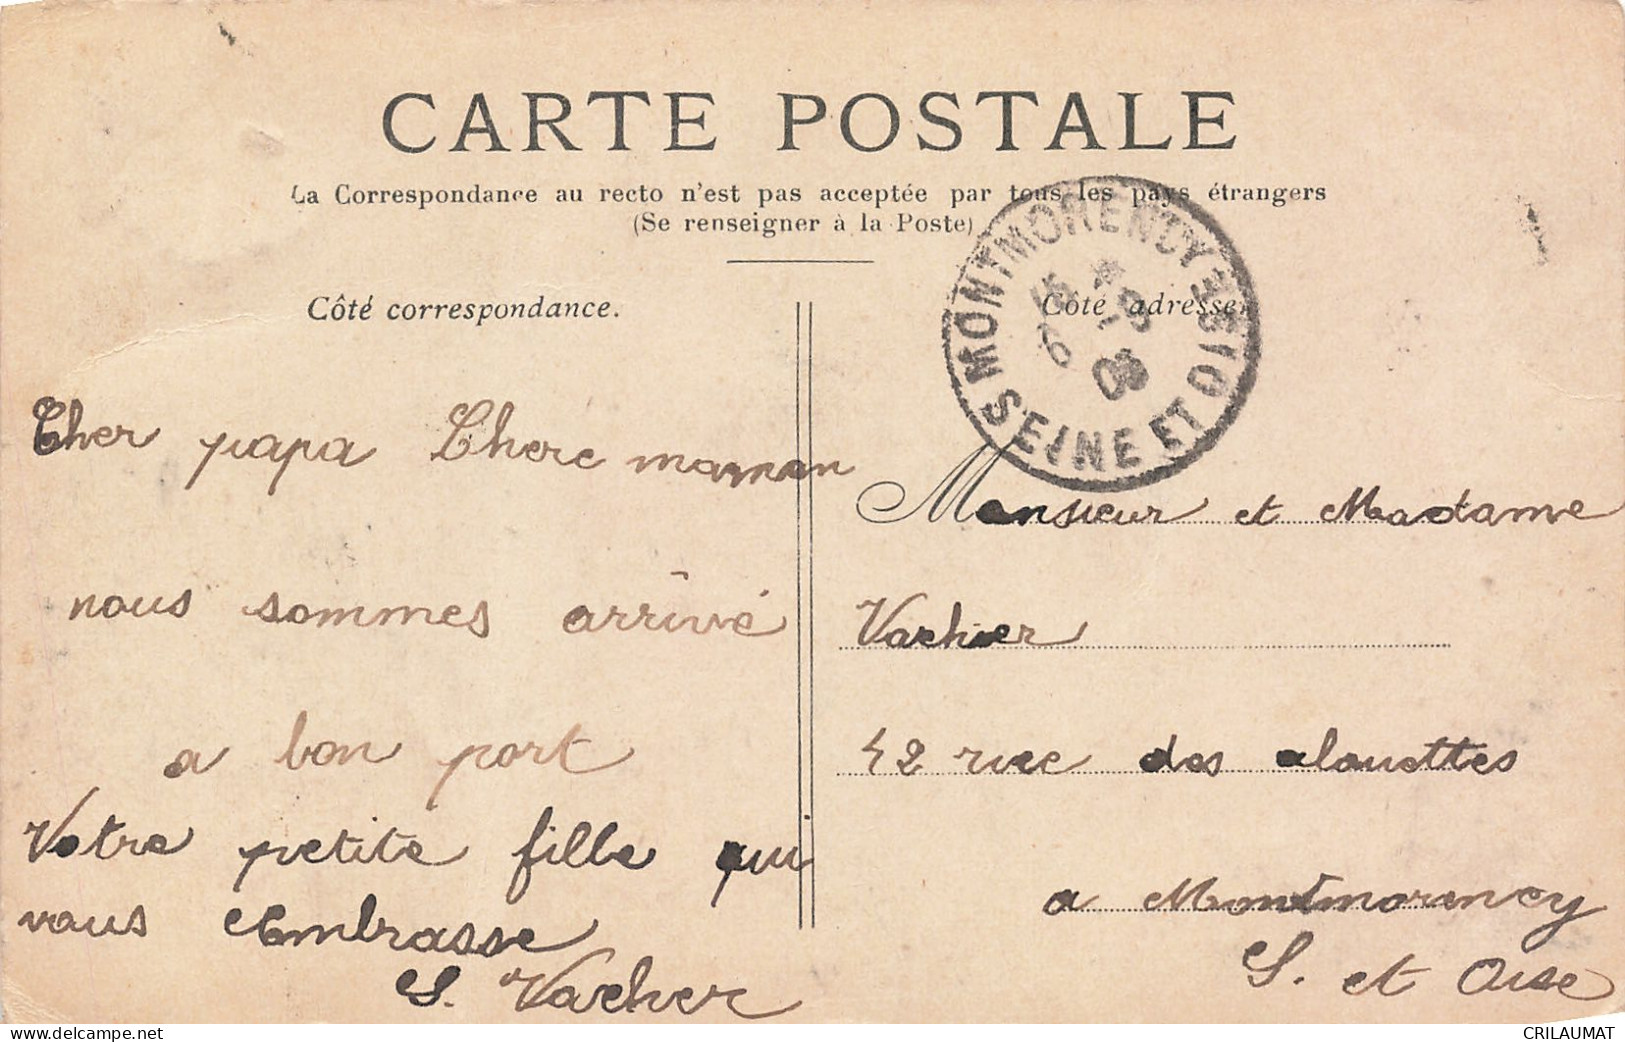 CARTE POSTALE
La Correspondance au recto n'est pas acceptée par tous les pays étrangers
(Se renseigner à la Poste)
Côté correspondance.
Cher papa Chere maman
nous sommes arrivé
a bon port
Votre petite fille qui
vous Embrasse
S. Vacher
Côté adresse
MONTMORENCY
SEINE ET OISE
Monsieur et Madame
Vacher
42 rue des alouettes
a Montmorency
S. et Oise
www.delcampe.net
CRILAUMAT